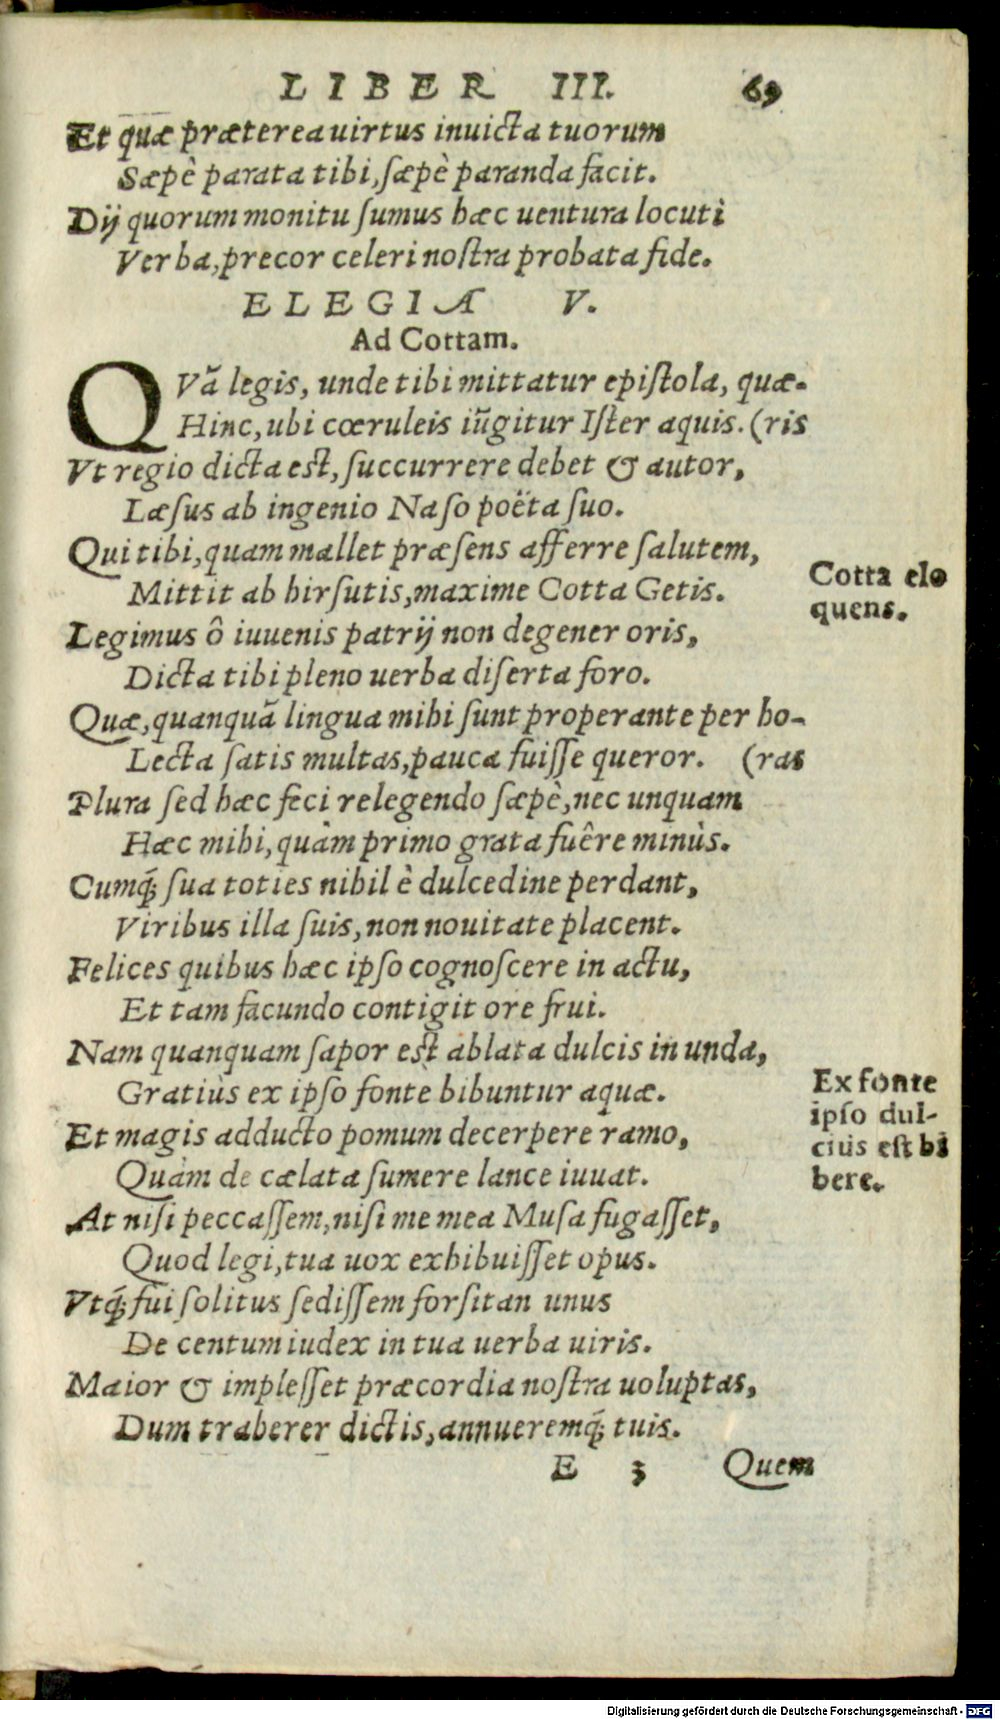 LIBER III. 69
Et quæ præterea uirtus inuicta tuorum
Sæpè parata tibi, ſæpè paranda facit.
Dij quorum monitu ſumus hæc uentura locuti
Verba, precor celeri noſtra probata fide.
ELEGIA V.
Ad Cottam.
QVã legis, unde tibi mittatur epiſtola, quæ-
Hinc, ubi cœruleis iũgitur Iſter aquis. (ris
Vt regio dicta eſt, ſuccurrere debet & autor,
Læſus ab ingenio Naſo poëta ſuo.
Qui tibi, quam mallet præſens afferre ſalutem,
Mittit ab hirſutis, maxime Cotta Getis.
Cotta elo
quens.
Legimus ô iuuenis patrij non degener oris,
Dicta tibi pleno uerba diſerta foro.
Quæ, quanquã lingua mihi ſunt properante per ho-
Lecta ſatis multas, pauca fuiſſe queror. (ras
Plura ſed hæc feci relegendo ſæpè, nec unquam
Hæc mihi, quàm primo grata fuêre minùs.
Cumq́; ſua toties nihil è dulcedine perdant,
Viribus illa ſuis, non nouitate placent.
Felices quibus hæc ipſo cognoſcere in actu,
Et tam facundo contigit ore frui.
Nam quanquam ſapor eſt ablata dulcis in unda,
Gratiùs ex ipſo fonte bibuntur aquæ.
Ex fonte
ipſo dul-
ciùs eſt bi
bere.
Et magis adducto pomum decerpere ramo,
Quàm de cælata ſumere lance iuuat.
At niſi peccaſſem, niſi me mea Muſa fugaſſet,
Quod legi, tua uox exhibuiſſet opus.
Vtq́; fui ſolitus ſediſſem forſitan unus
De centum iudex in tua uerba uiris.
Maior & impleſſet præcordia noſtra uoluptas,
Dum traherer dictis, annueremq́; tuis.
E 3 Quem
Digitalisierung gefördert durch die Deutsche Forschungsgemeinschaft - DFG